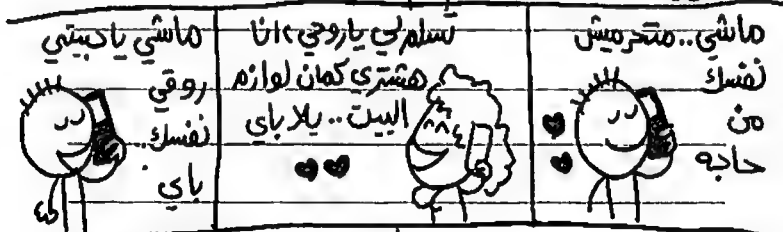 ماشي.. متحرميش
نفسك
من
حاجه
تسلم لي يا روحي، انا
هشتري كمان لوازم
البيت.. يلا باي
ماشي يا حبيبتي
روقي
نفسك..
باي